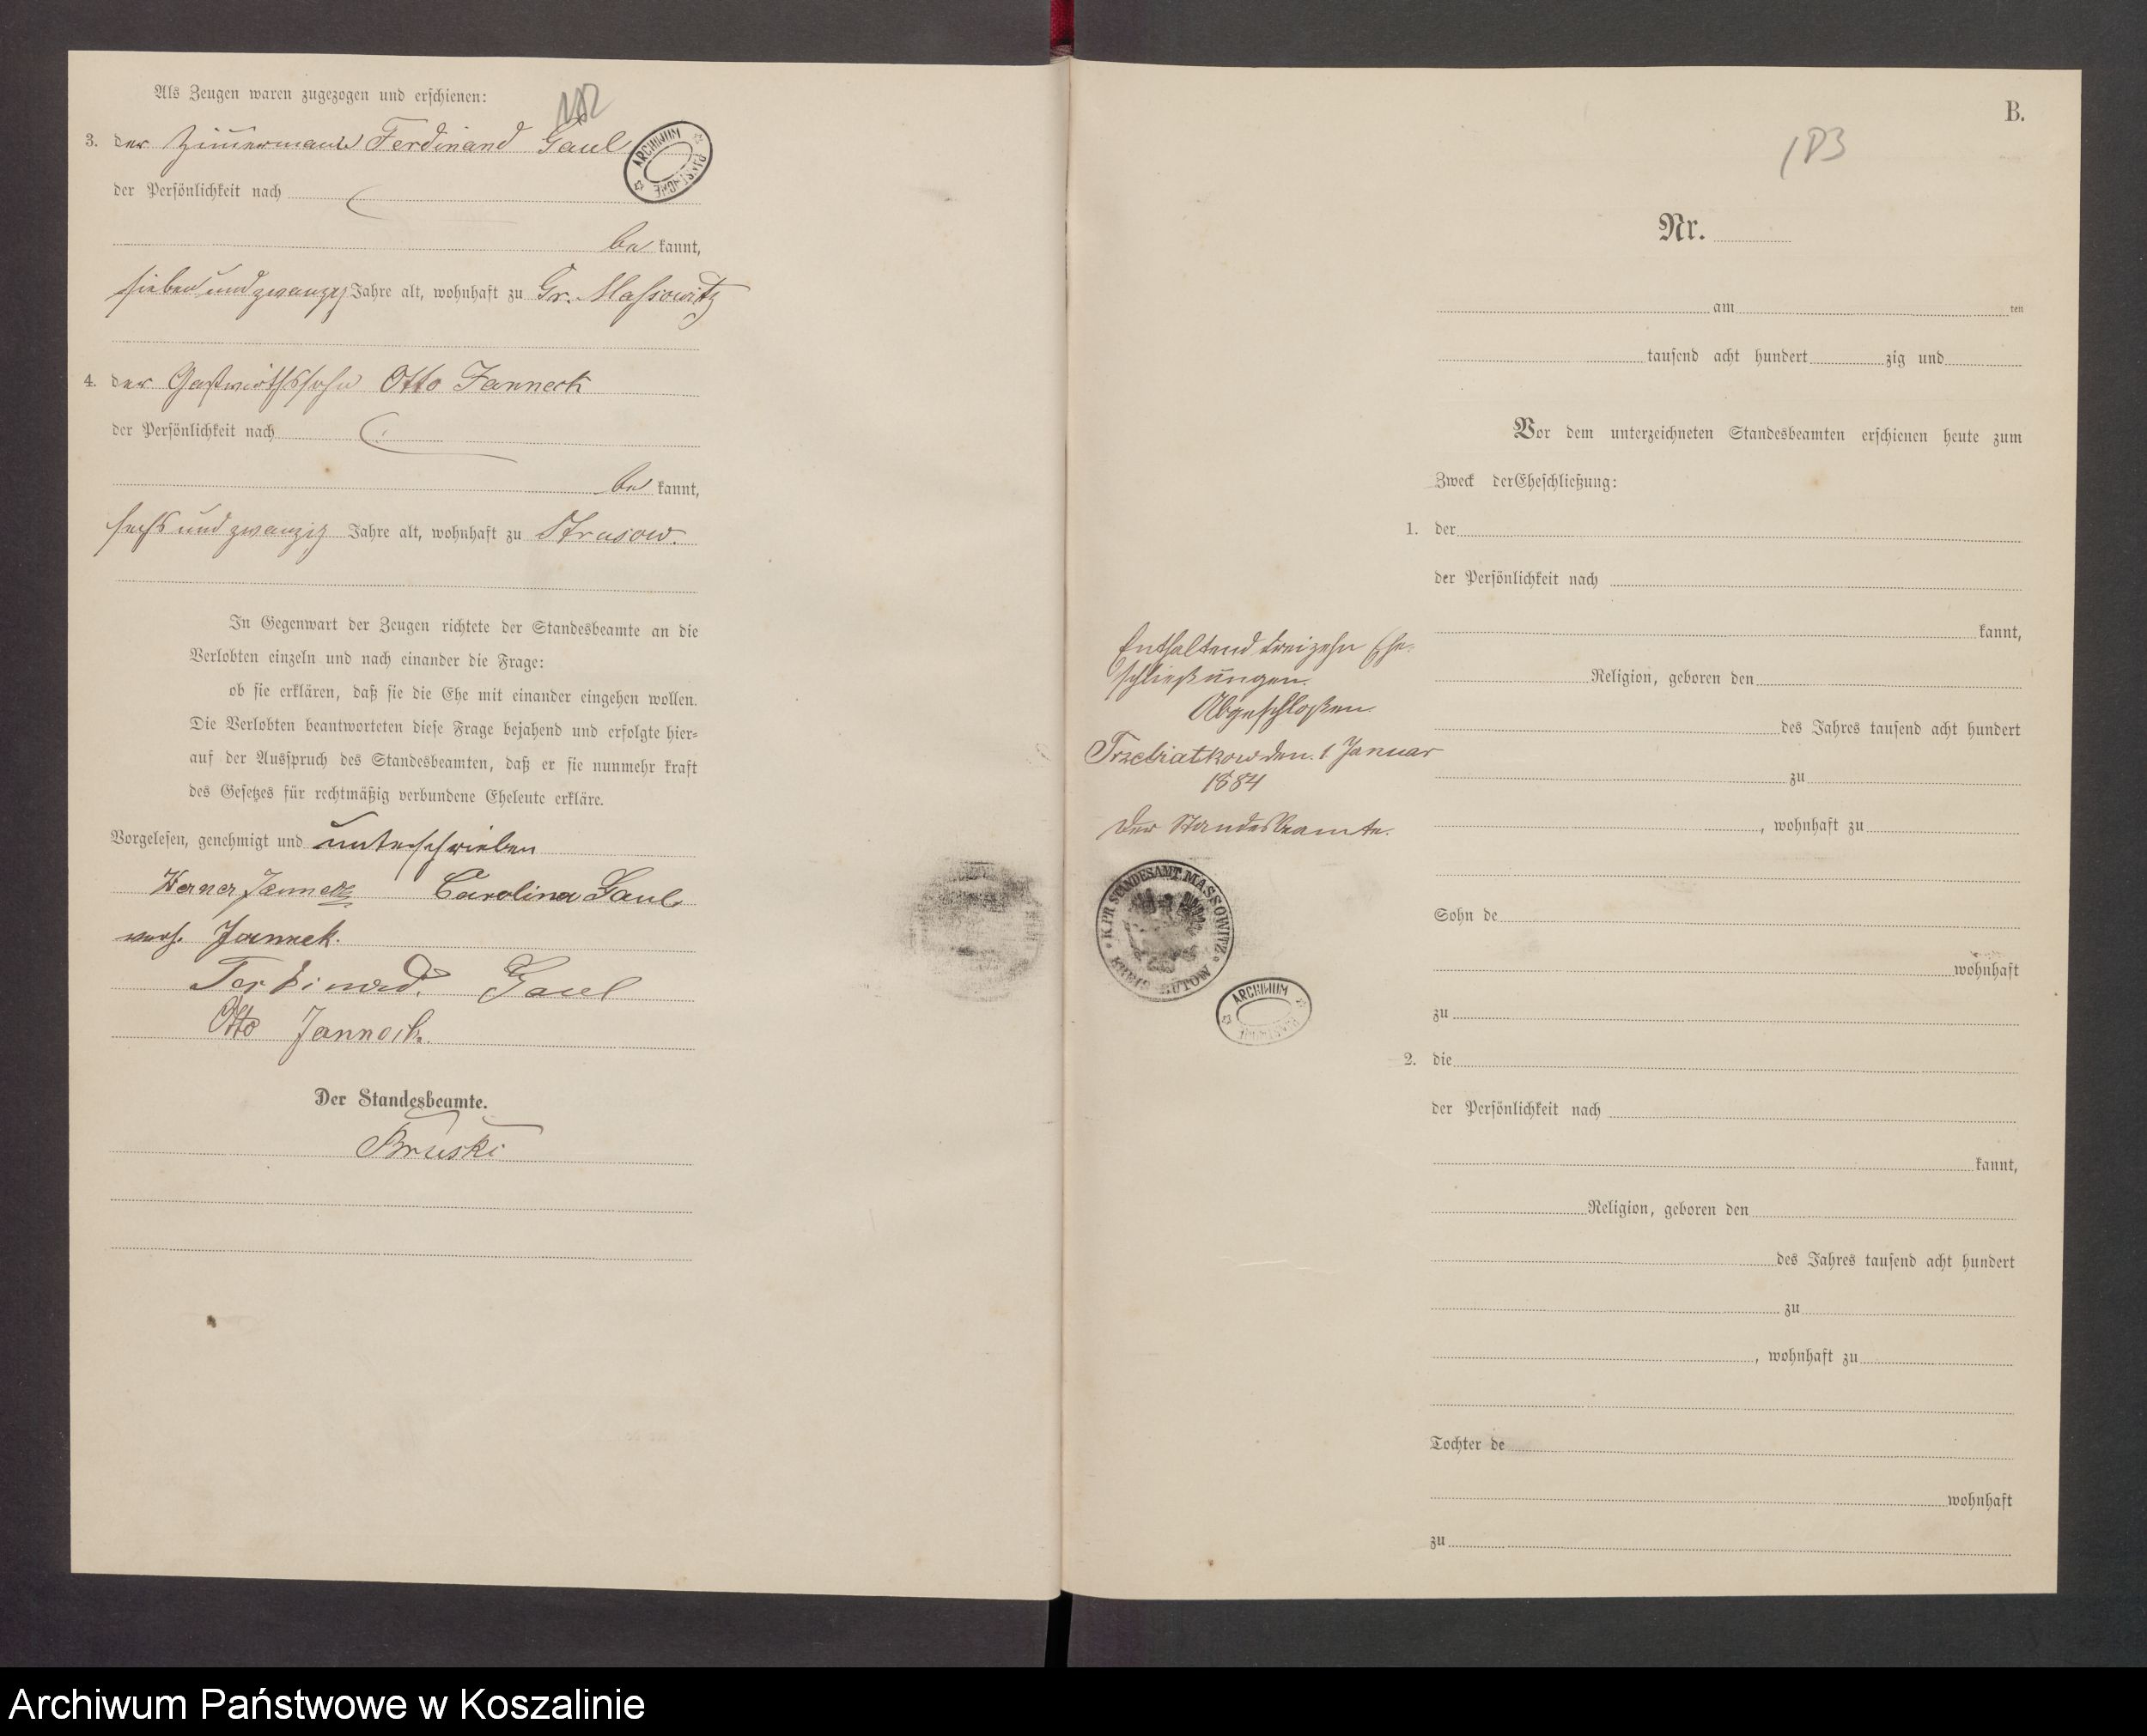 Als Zeugen waren zugezogen und erschienen:
182
3. der Zimmermann Ferdinand Gaul
ARCHIWUM PAŃSTWOWE
der Persönlichkeit nach
be kannt,
sieben und zwanzig Jahre alt, wohnhaft zu Gr. Massowitz
4. der Gastwirthssohn Otto Janneck
der Persönlichkeit nach
be kannt,
sechs und zwanzig Jahre alt, wohnhaft zu Strusow.
In Gegenwart der Zeugen richtete der Standesbeamte an die
Verlobten einzeln und nach einander die Frage:
ob sie erklären, daß sie die Ehe mit einander eingehen wollen.
Die Verlobten beantworteten diese Frage bejahend und erfolgte hier=
auf der Ausspruch des Standesbeamten, daß er sie nunmehr kraft
des Gesetzes für rechtmäßig verbundene Eheleute erkläre.
Vorgelesen, genehmigt und unterschrieben
Janneck Carolina Gaul
Janneck.
Ferdinad. Gaul
Otto Janneck.
Der Standesbeamte.
Bruski
B.
183
Nr.
am ten
tausend acht hundert zig und
Vor dem unterzeichneten Standesbeamten erschienen heute zum
Zweck der Eheschließung:
1. der
der Persönlichkeit nach
kannt,
Religion, geboren den
des Jahres tausend acht hundert
zu
, wohnhaft zu
Sohn de
wohnhaft
zu
2. die
der Persönlichkeit nach
kannt,
Religion, geboren den
des Jahres tausend acht hundert
zu
, wohnhaft zu
Tochter de
wohnhaft
zu
Enthaltend dreizehn Ehe-
schließungen.
Abgeschloßen.
Trzebiatkow den 1 Januar
1884
Der Standesbeamte.
KPR STANDESAMT MASSOWITZ
KREIS BÜTOW
ARCHIWUM PAŃSTWOWE
Archiwum Państwowe w Koszalinie